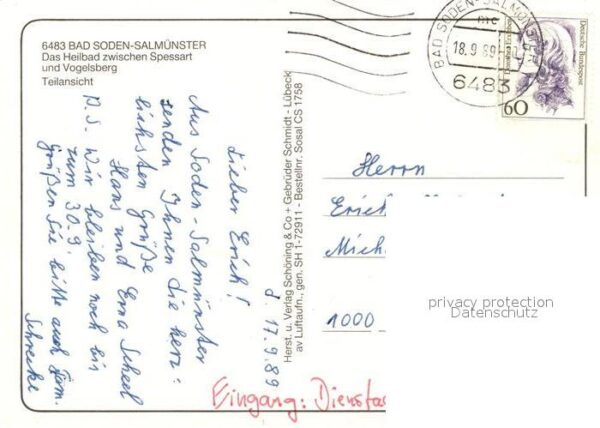 6483 BAD SODEN-SALMÜNSTER
Das Heilbad zwischen Spessart
und Vogelsberg
Teilansicht
d. 17.9.89
Lieber Erich!
Aus Soden-Salmünster
senden Ihnen die herz=
lichsten Grüße
Hans und Erna Scheel
P.S. Wir bleiben noch bis
zum 30.9.
Grüßen Sie bitte auch Fam.
Schrecke
Herst. u. Verlag Schöning & Co + Gebrüder Schmidt - Lübeck
av Luftaufn., gen. SH 1-72911 - Bestellnr. Sosal CS 1758
BAD SODEN-SALMÜNSTER
mc
18.9.89
6483
Deutsche Bundespost
60
Herrn
Erich
Mich
1000
privacy protection
Datenschutz
Eingang: Dienstag